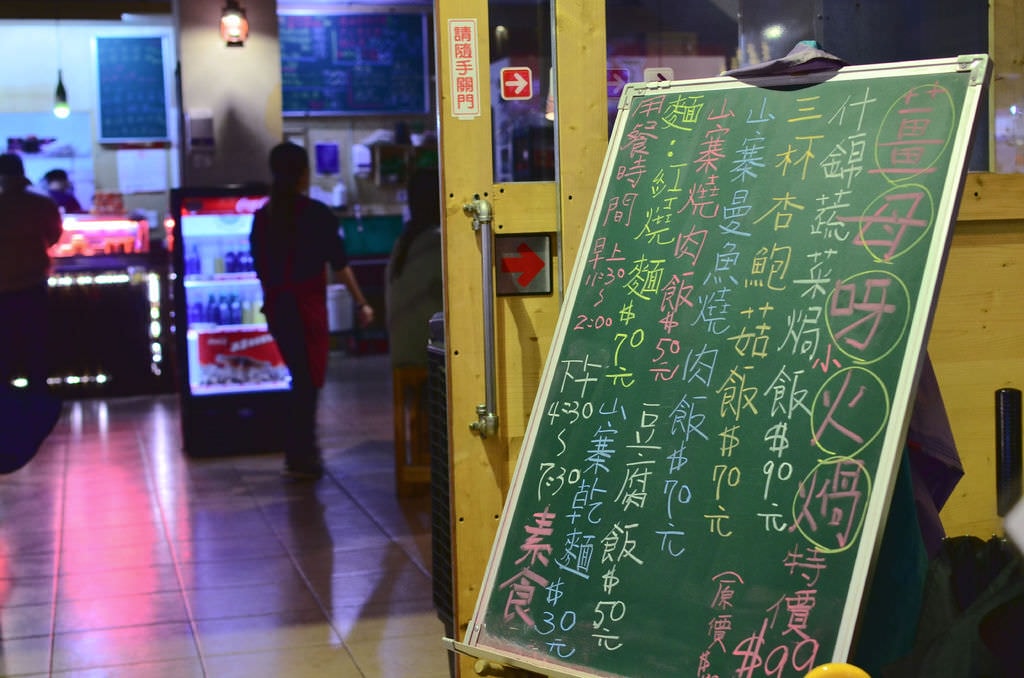 請隨手關門
薑母呀小火焗
特價$99
(原價$
什錦蔬菜焗飯$90元
三杯杏鮑菇飯$70元
山寨曼魚燒肉飯$70元
山寨燒肉飯$50元
豆腐飯$50元
麵:紅燒麵$70元
山寨乾麵$30元
用餐時間 早上
~2:00
下午4:30~7:30
素食